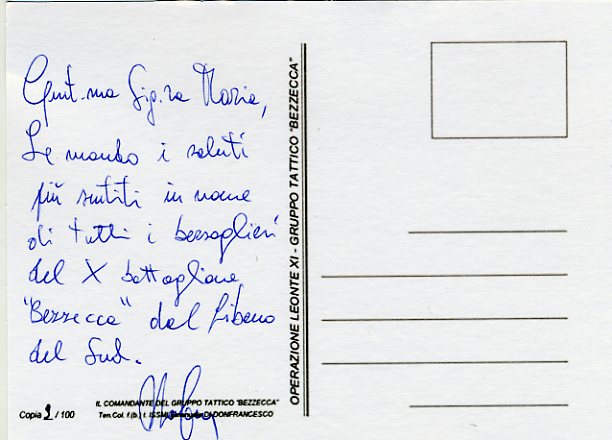 Gent.ma Sig.ra Maria,
Le mando i saluti
più sentiti in nome
di tutti i bersaglieri
del X battaglione
"Bezzecca" dal Libano
del Sud.
IL COMANDANTE DEL GRUPPO TATTICO "BEZZECCA"
Ten.Col. f.(b.) t. ISSMI DI DONFRANCESCO
Copia 2 / 100
OPERAZIONE LEONTE XI - GRUPPO TATTICO "BEZZECCA"